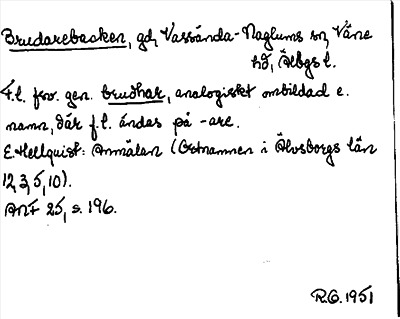 Brudarebacken, gd, Vassända-Naglums sn, Väne
hd, Älvbgs l.
F.l. fsv. gen. brudhar, analogiskt ombildad e.
namn, där f.l. ändas på -are.
E. Hellquist: Anmälan (Ortnamnen i Älvsborgs län
12, 3, 5, 10).
ANF 25, s. 196.
R.G. 1951